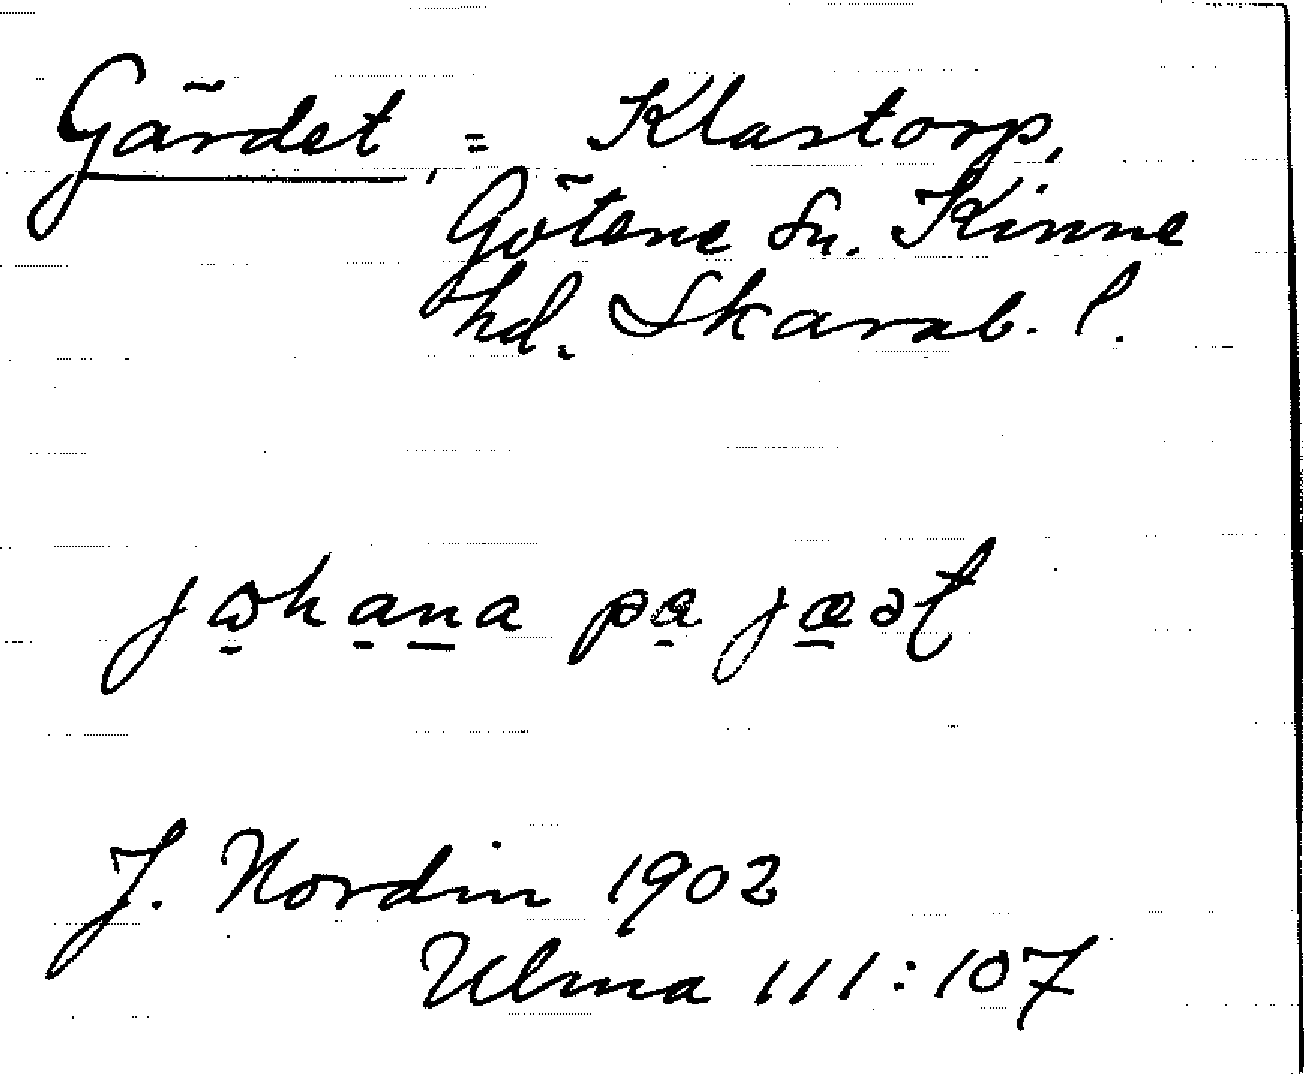 Gärdet, = Klastorp,
Götene Sn. Kinne
hd. Skarab. l.
jơhana pa jæət
J. Nordin 1902
Ulma 111:107